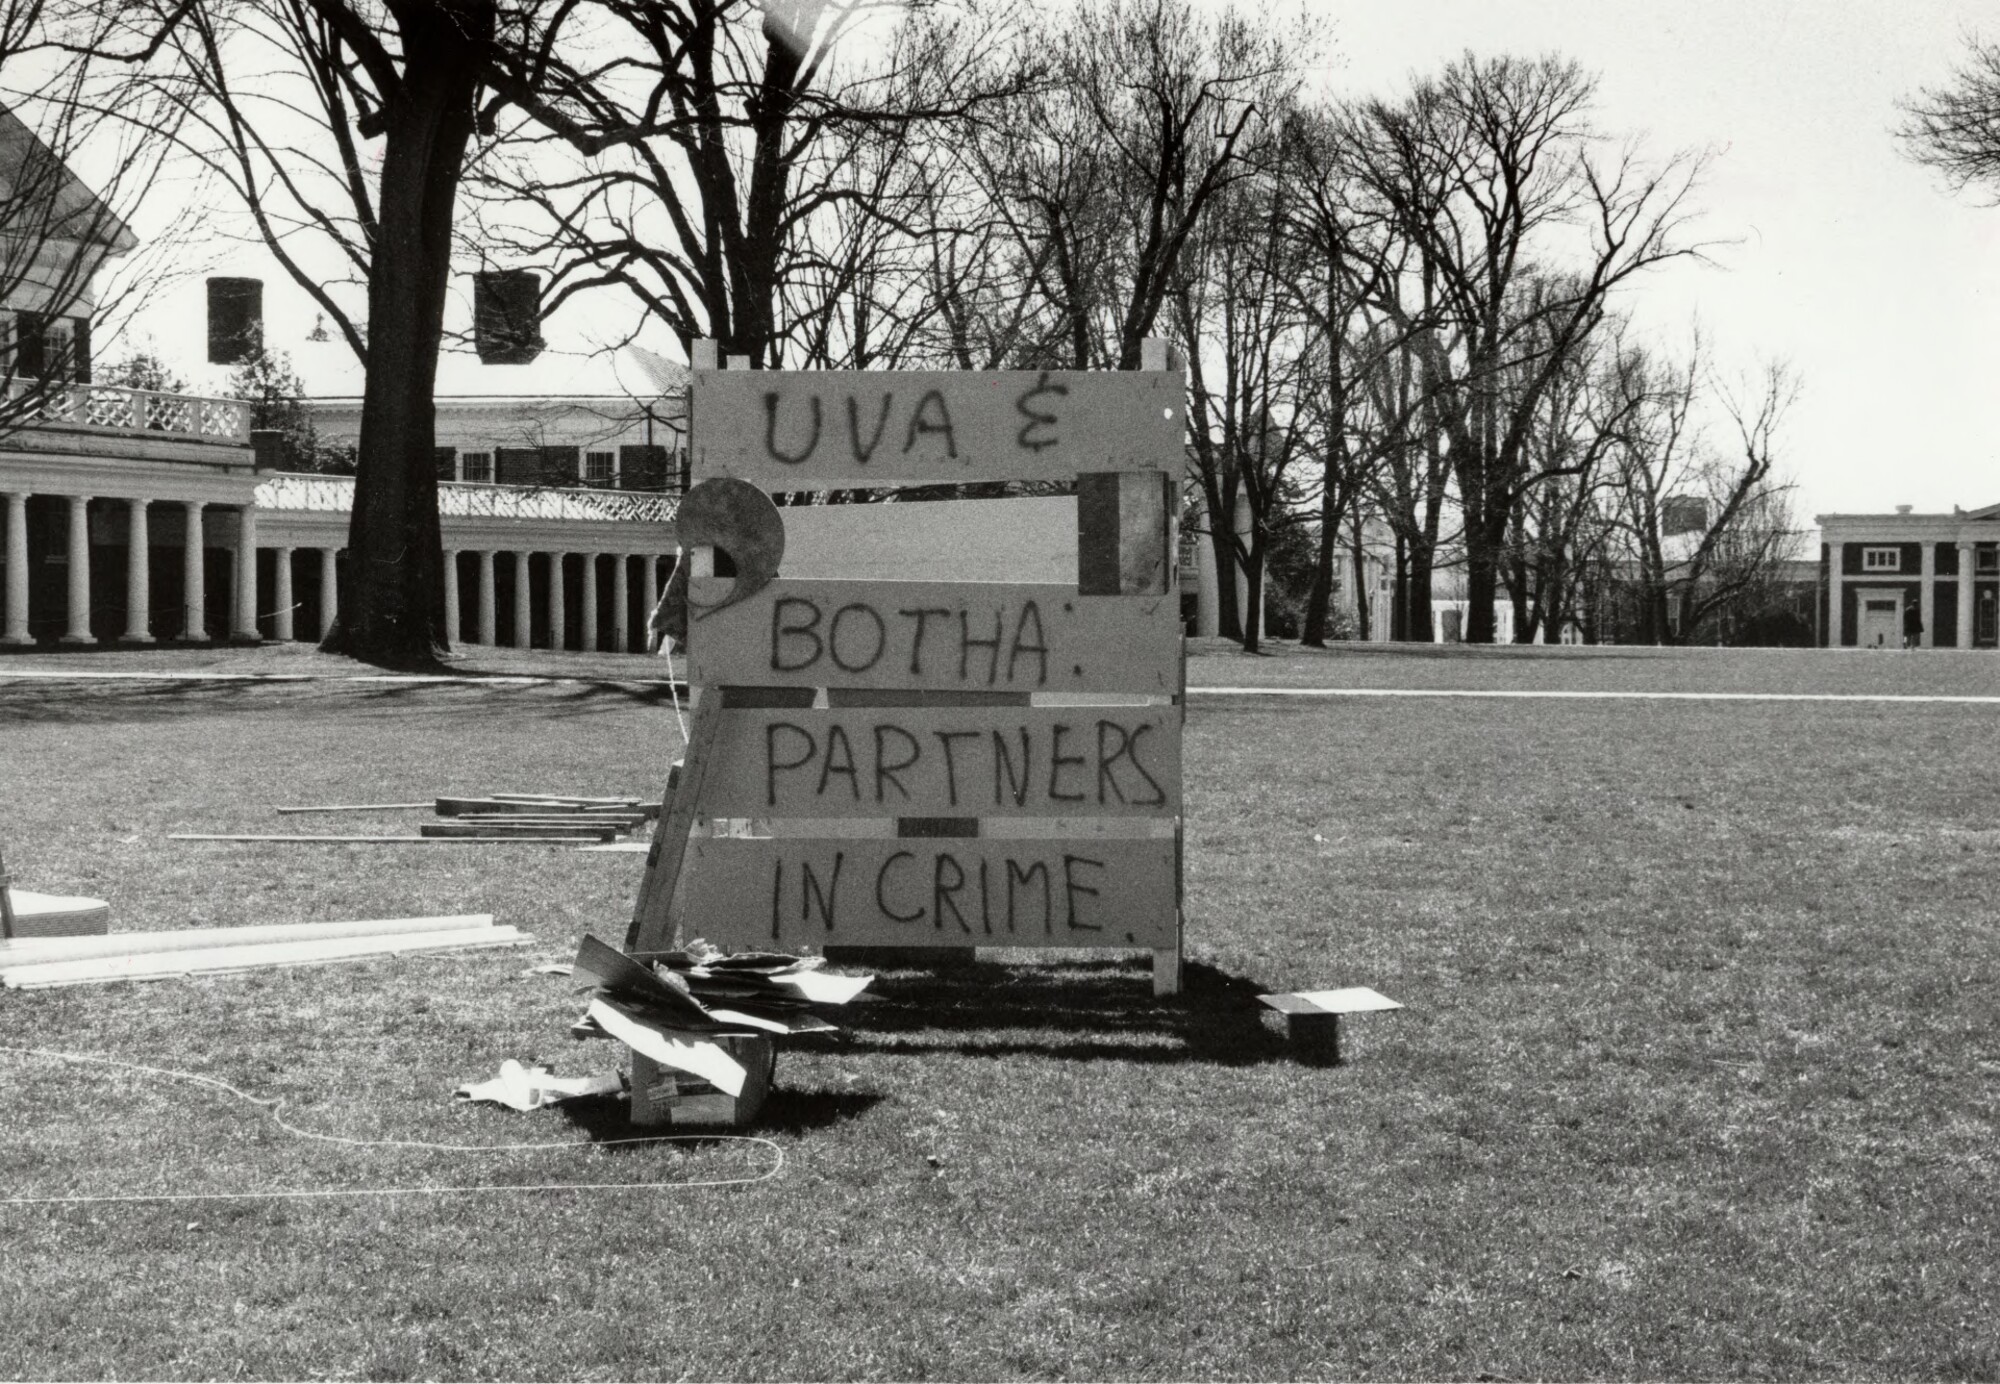 UVA &
BOTHA:
PARTNERS
IN CRIME.